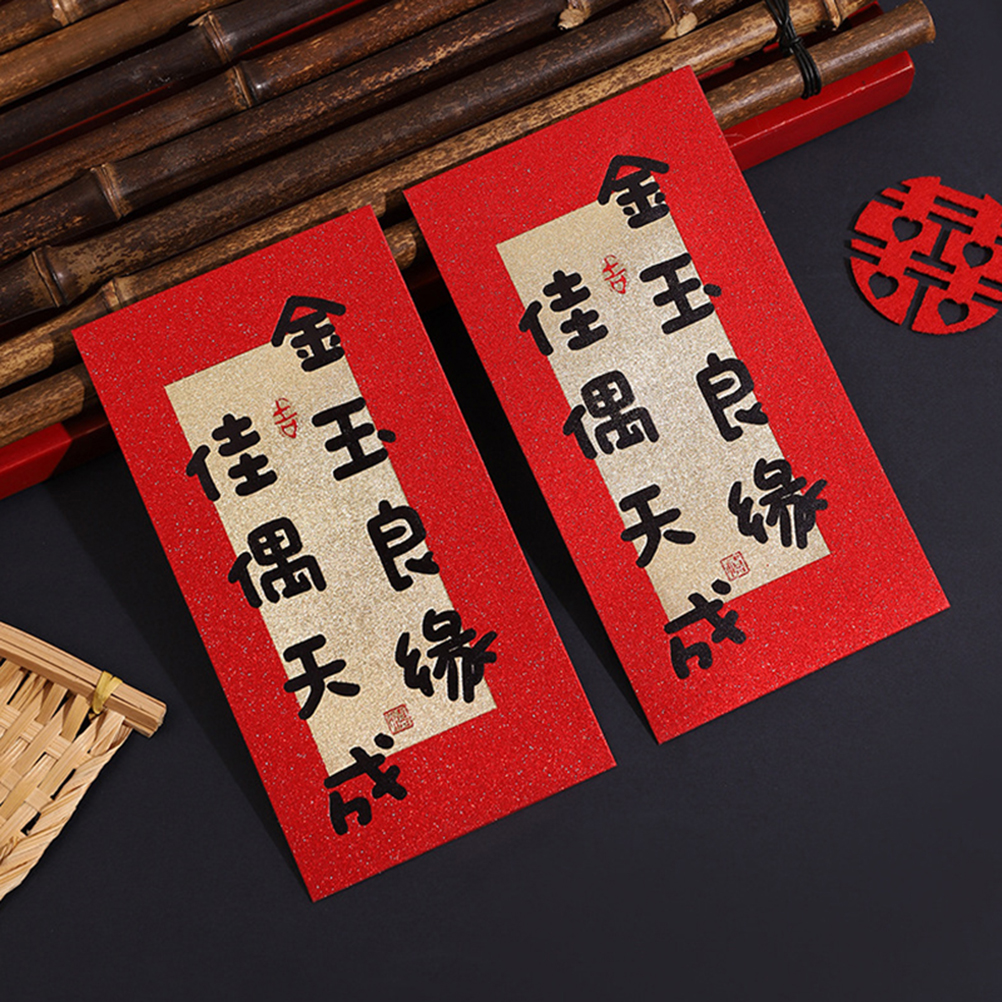 金玉良缘
佳偶天成
吉
金玉良缘
佳偶天成
吉
囍